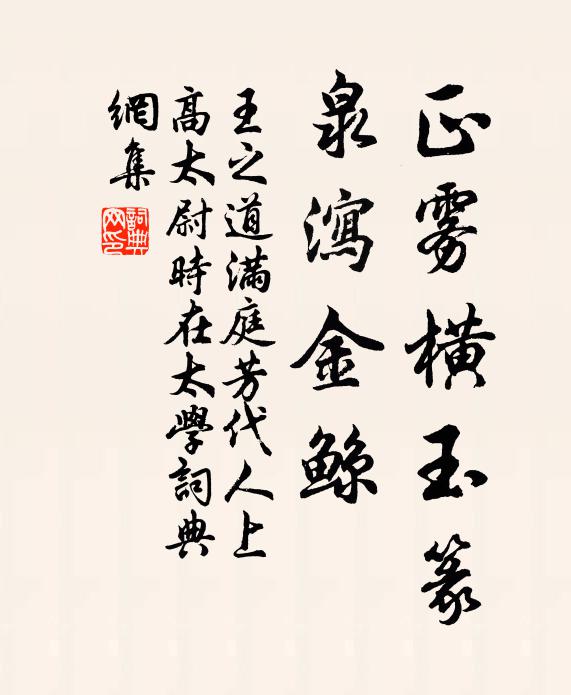 正雾横玉篆
泉瀉金鲸
王之道满庭芳代人上
高太尉時在太學詞典
網集
詞典网印